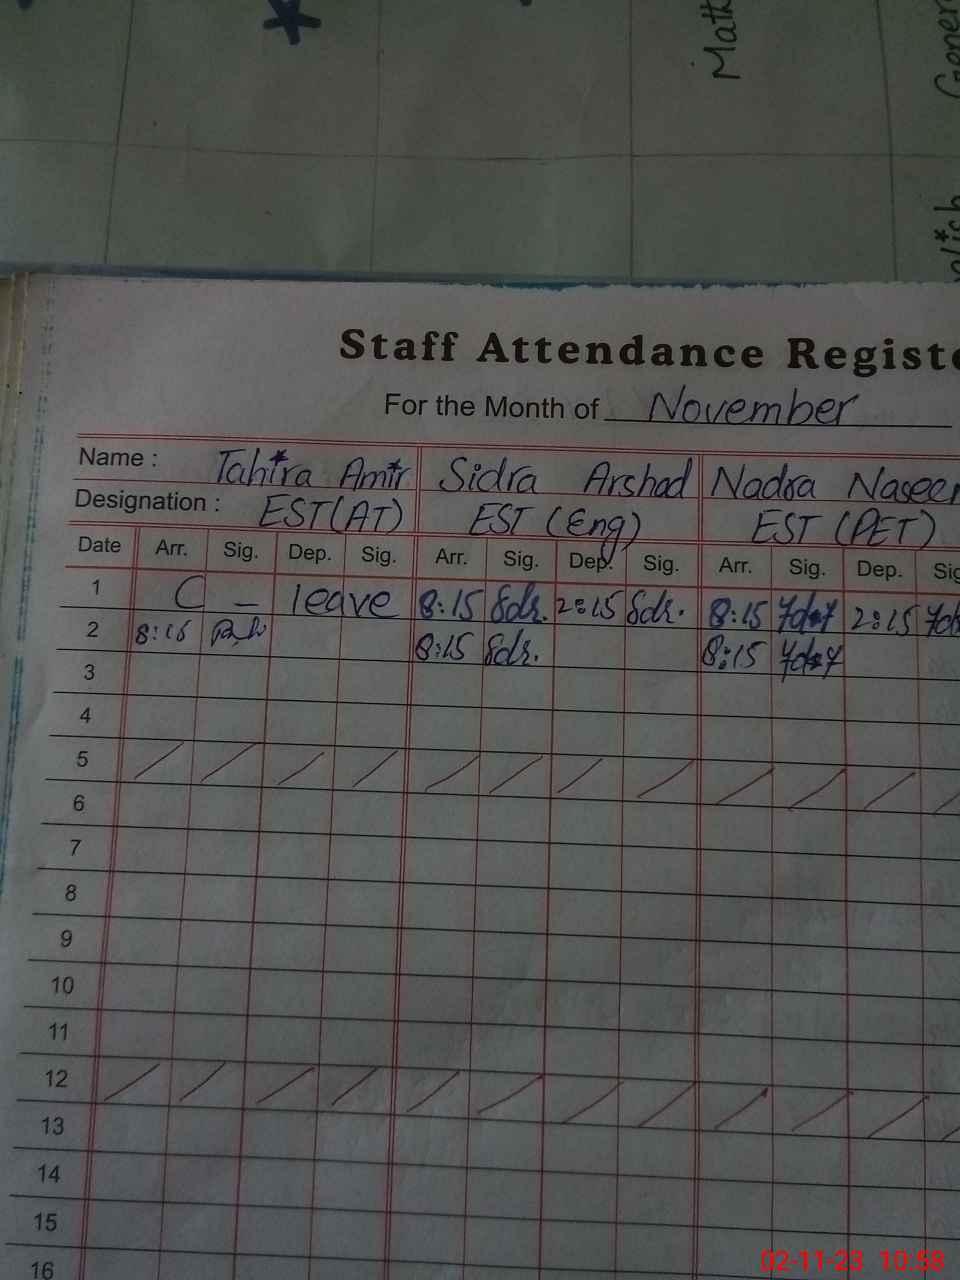 Math
Gener
glish
Staff Attendance Registe
For the Month of November
Name : Tahira Amir Sidra Arshad Nadra Naseer
Designation : EST(AT) EST (Eng) EST (PET)
Date Arr. Sig. Dep. Sig. Arr. Sig. Dep. Sig. Arr. Sig. Dep. Sig
1 C – leave 8:15 Sdr. 2:15 Sdr. 8:15 2:15
2 8:15 8:15 Sdr. 8:15
3
4
5
6
7
8
9
10
11
12
13
14
15
16
02-11-23 10:58